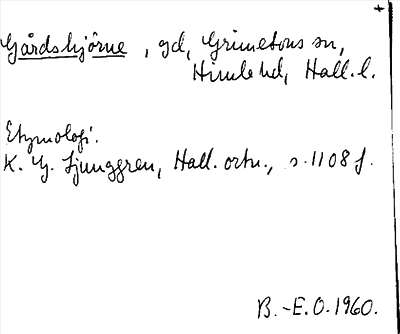 Gårdshjörne, gd, Grimetons sn,
Himle hd, Hall. l.
Etymologi.
K. G. Ljunggren, Hall. ortn., s. 1108 f.
B.-E. O. 1960.